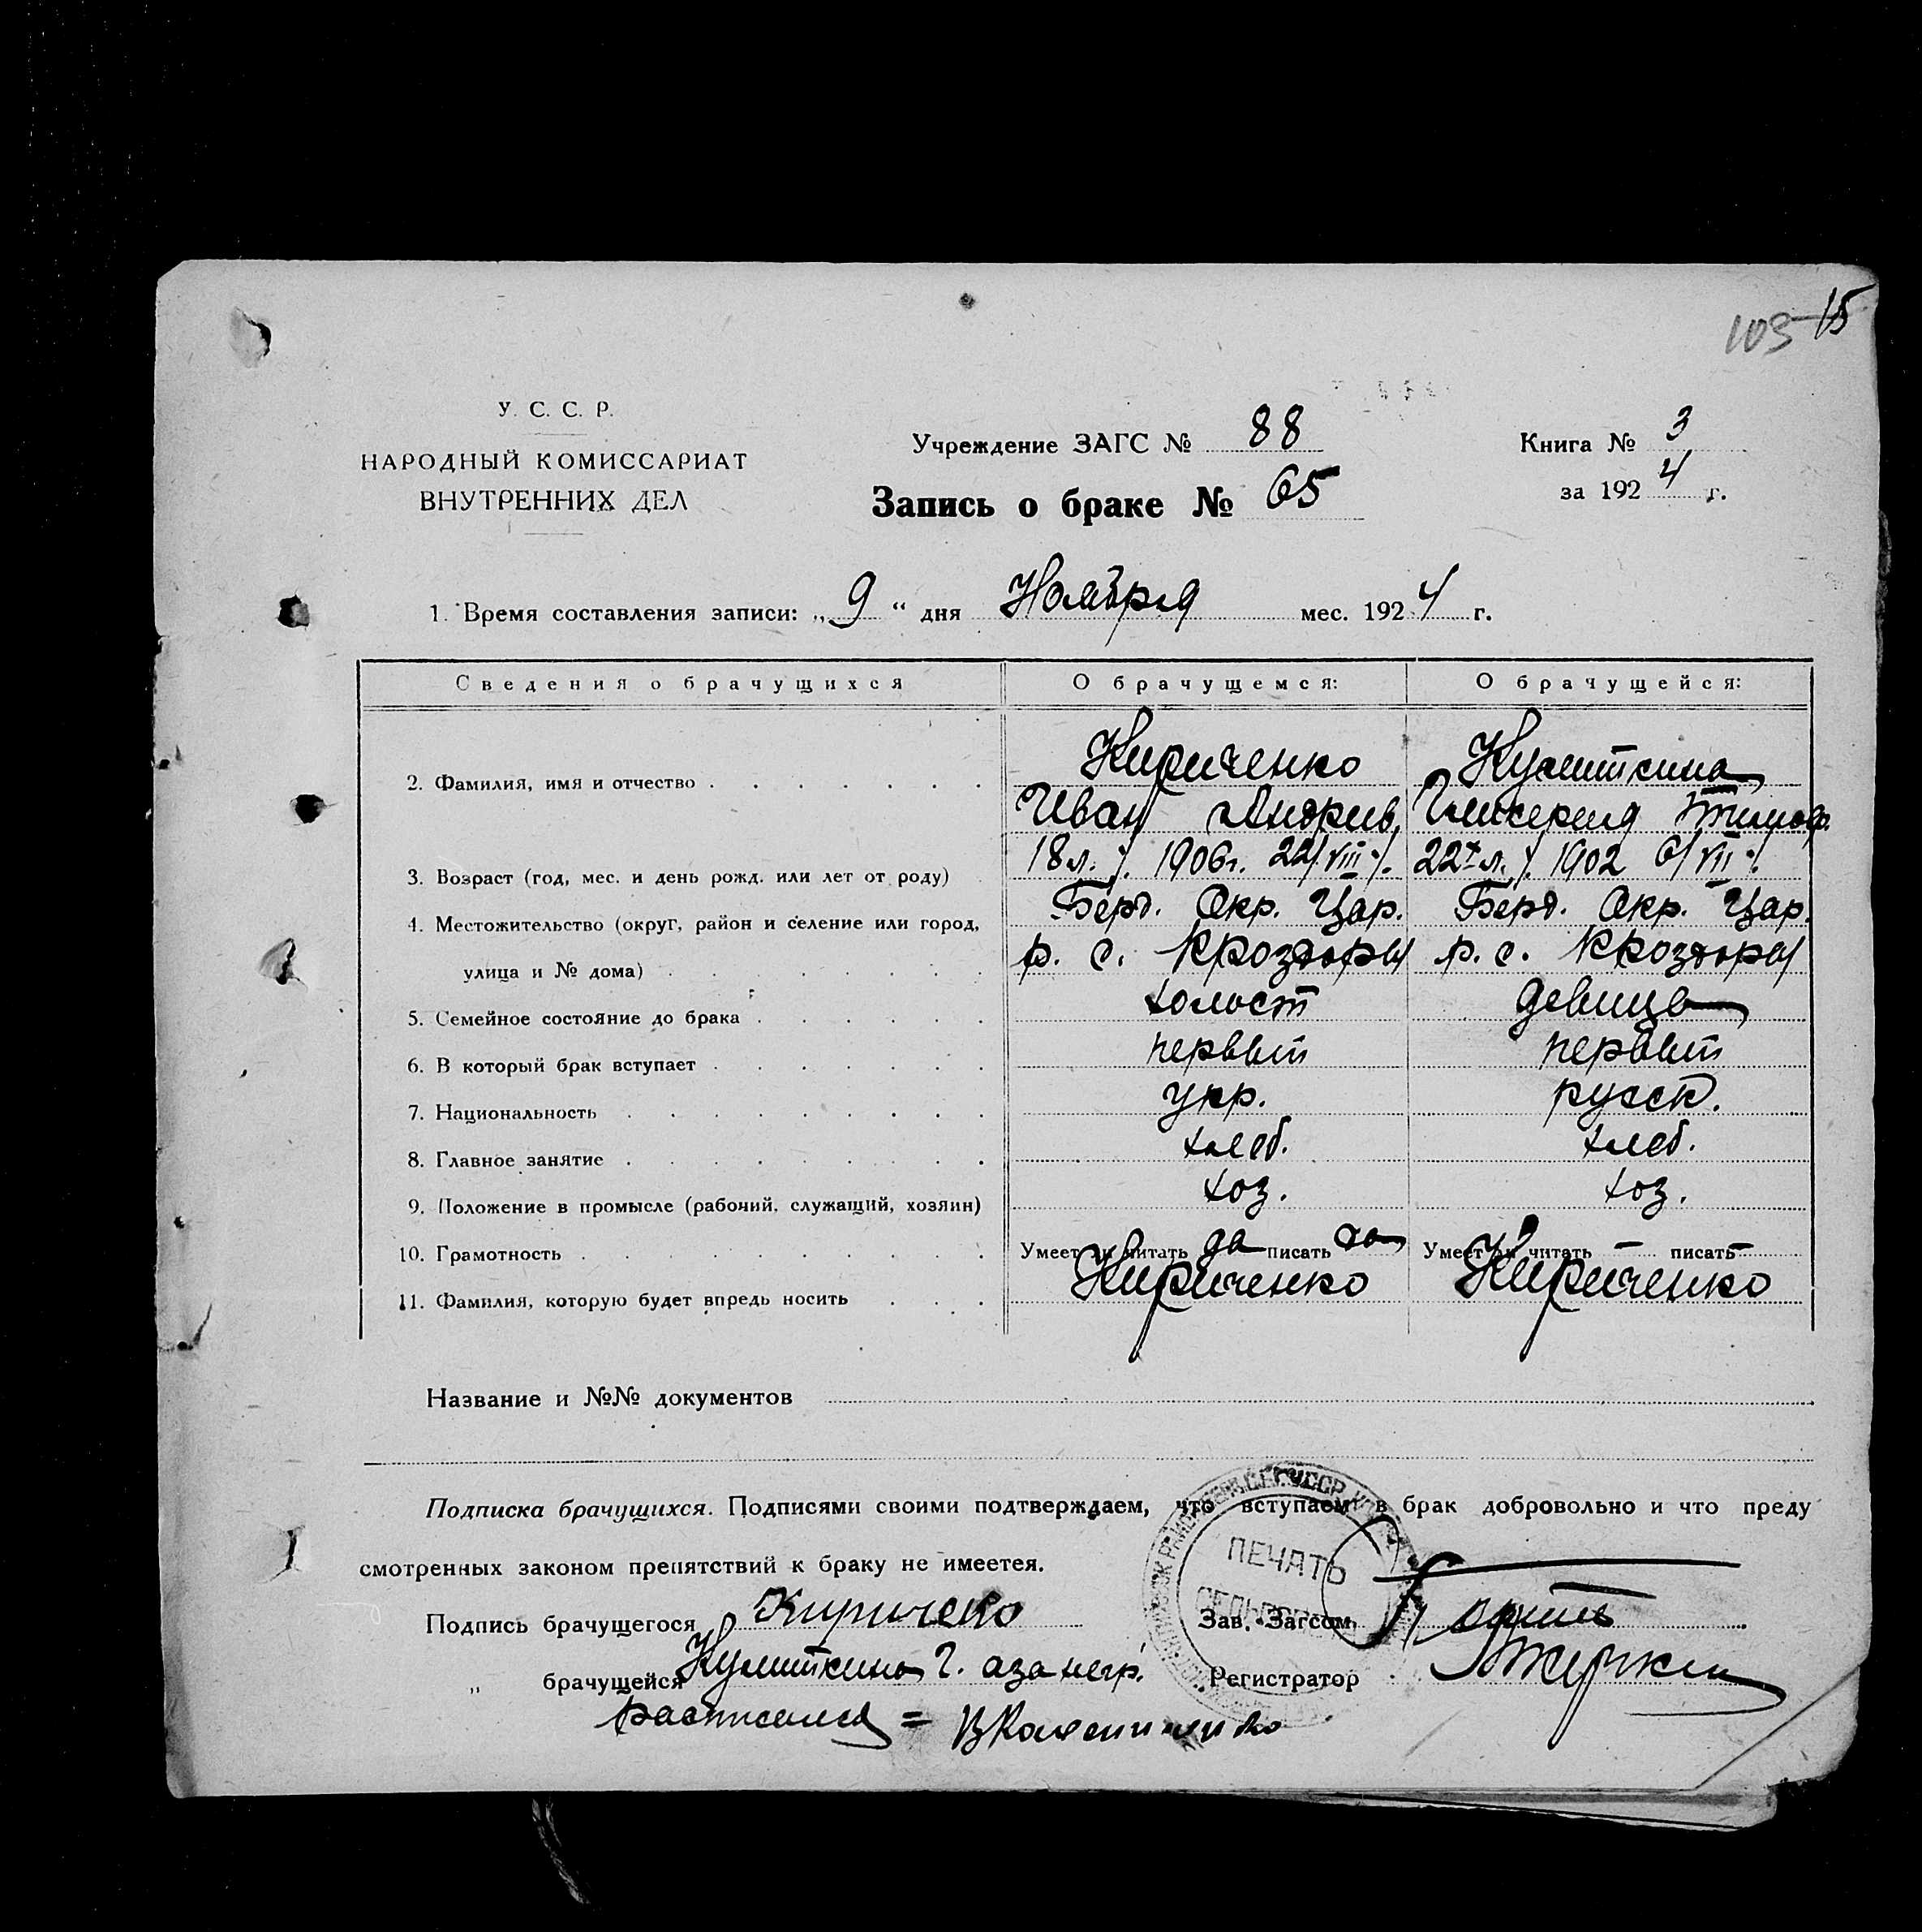 103 15
У. С. С. Р.
НАРОДНЫЙ КОМИССАРИАТ
ВНУТРЕННИХ ДЕЛ
Учреждение ЗАГС № 88
Запись о браке № 65
Книга № 3
за 1924 г.
1. Время составления записи: „9“ дня Ноября мес. 1924 г.
Сведения о брачущихся О брачущемся: О брачущейся:
2. Фамилия, имя и отчество Кириченко
Иван Андрив
3. Возраст (год, мес. и день рожд. или лет от роду) 18 л. 1906 г. 22/VIII 22 л. 1902 6/VII
4. Местожительство (округ, район и селение или город, Берд. Окр. Цар. Берд. Окр. Цар.
улица и № дома) р. с. р. с.
5. Семейное состояние до брака холост девица
6. В который брак вступает первый первый
7. Национальность укр. русск.
8. Главное занятие хлеб. хлеб.
9. Положение в промысле (рабочий, служащий, хозяин) хоз. хоз.
10. Грамотность Умеет ли читать да писать да Умеет ли читать — писать —
11. Фамилия, которую будет впредь носить Кириченко Кириченко
Название и №№ документов
Подписка брачущихся. Подписями своими подтверждаем, что вступаем в брак добровольно и что преду
смотренных законом препятствий к браку не имеетея.
Подпись брачущегося Кириченко Зав. Загсом
„ брачущейся Г. а за негр. Регистратор
расписался =
ПЕЧАТЬ